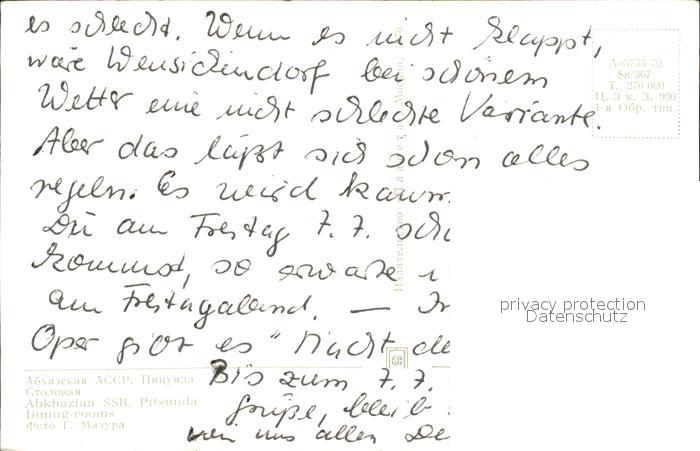 es schlecht. Wenn es nicht klappt,
wäre Wensickendorf bei schönem
Wetter eine nicht schlechte Variante.
Aber das läßt sich schon alles
regeln. Es wird kaum
Du am Freitag 7. 7. scho
kommst, so erwarte
am Freitagabend. — In
Oper gibt es "Macht de
Bis zum 7. 7.
Grüße, bleib
von uns allen De
А05755-70
8в-367
Т. 270 000
Ц. 3 к. З. 990
1-я Обр. тип.
Издательство Планета Москва
privacy protection
Datenschutz
Абхазская АССР. Пицунда
Столовая
Abkhazian SSR. Pitsunda
Dining-rooms
Фото Г. Мазура